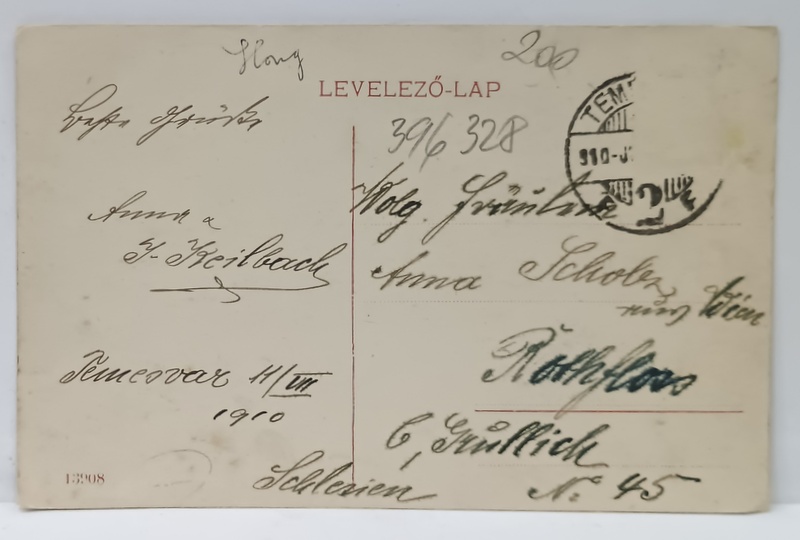 Hong
200
LEVELEZŐ-LAP
TEM
910-J
2
396 328
Beste Grüße
Anna &
J. Keilbach
Temesvar 11/VII
1910
Wolg. Fräulein
Anna Scholz
aus Wien
Rothfloss
b, Grullich
Schlesien No 45
13908